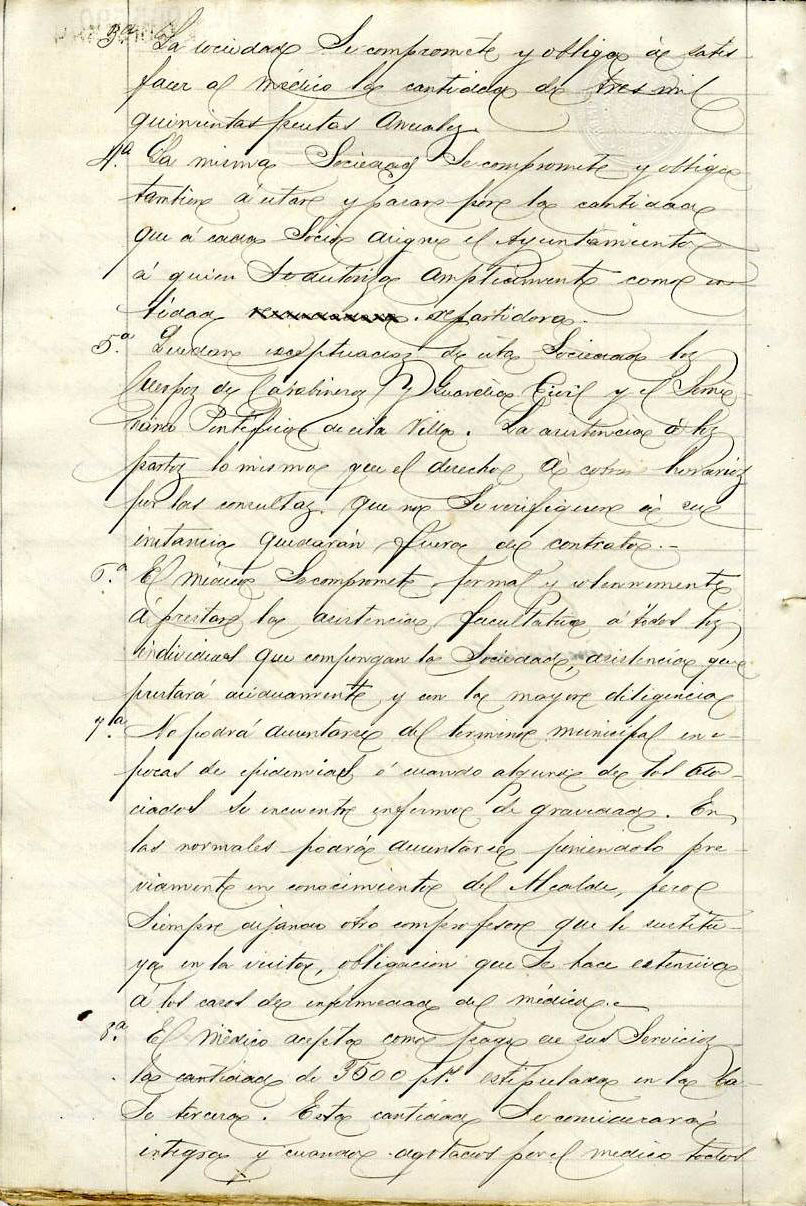 3ª La sociedad se compromete y obliga á satis
facer al médico la cantidad de tres mil
quinientas pesetas anuales.
4.ª La misma Sociedad se compromete y obliga
tambien á estar y pasar por la cantidad
que á cada Socio asigne el Ayuntamiento
á quien se autoriza ampliamente como en
tidad repartidora.
5.ª Quedan exceptuados de esta Sociedad los
Cuerpos de Carabineros y Guardia Civil y el Semi
nario Pontificio de esta Villa. La asistencia á los
partos lo mismo que el derecho á cobrar honorarios
por las consultas, que no se verifiquen á su
instancia quedarán fuera de contrato.-
6.ª El médico se compromete formal y solemnemente
á prestar la asistencia facultativa á todos los
individuos que compongan la Sociedad, asistencia que
prestará asiduamente y con la mayor diligencia
7.ª No podrá ausentarse del termino municipal en e-
pocas de epidemias ó cuando alguno de los aso-
ciados se encuentre enfermo de gravedad. En
las normales podrá ausentarse poniendolo pre-
viamente en conocimiento del Alcalde, pero
siempre dejando otro comprofesor que le sustitu-
ya en la visita, obligacion que se hace extensiva
á los casos de enfermedad del médico.-
8.ª El médico acepta como pago de sus servicios
la cantidad de 3500 ptas estipulada en la ba-
se tercera. Esta cantidad se considerará
integra y cuando agotados por el medico todos